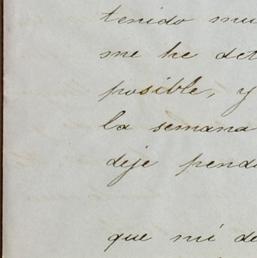 tenido mu
me he det
posible, y
la semana
deje pend
que mi de